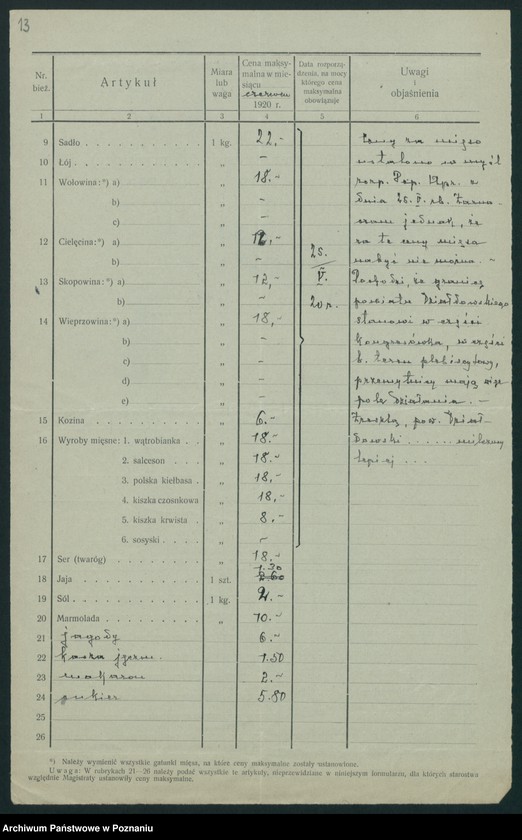 13
Nr. bież.
Artykuł
Miara lub waga
Cena maksymalna w miesiącu czerwcu 1920 r.
Data rozporządzenia, na mocy którego cena maksymalna obowiązuje
Uwagi i objaśnienia
1 2 3 4 5 6
9 Sadło . . . . . . . . . . 1 kg. 22,-
10 Łój . . . . . . . . . . . „ –
11 Wołowina:*) a) „ 18.-
b) „ –
c) „ –
12 Cielęcina:*) a) „ 12,-
b) „ –
13 Skopowina:*) a) „ 12,-
b) „ –
14 Wieprzowina:*) a) „ 18,-
b) „ –
c) „ –
d) „ –
e) „ –
15 Kozina . . . . . . . . . „ 6.-
16 Wyroby mięsne: 1. wątrobianka . . „ 18.-
2. salceson . . . „ 18.-
3. polska kiełbasa . „ 18,-
4. kiszka czosnkowa „ 18,-
5. kiszka krwista . „ 8,-
6. sosyski . . . „ –
17 Ser (twaróg) . . . . . . . „ 18.-
18 Jaja . . . . . . . . . . 1 szt. 1.30 2 60
19 Sól . . . . . . . . . . . 1 kg. 2.-
20 Marmolada . . . . . . . . „ 10.-
21 jagody 6.-
22 kasza jęczm. 1.50
23 makaron 2.-
24 cukier 5.80
25
26
25.
V.
20 r.
Ceny za mięso
ustalono w myśl
rozp. z
dnia 25. V. rb.
jednak, że
za te ceny mięsa
nabyć nie można. -
że granicę
powiatu Działdowskiego
stanowi w części
Kongresówka, w części
b. teren plebiscytowy,
przemytnicy mają więc
pole działania. -
pow. Dział-
dowski . . . . . .
lepiej . . .
*) Należy wymienić wszystkie gatunki mięsa, na które ceny maksymalne zostały ustanowione.
Uwaga: W rubrykach 21–26 należy podać wszystkie te artykuły, nieprzewidziane w niniejszym formularzu, dla których starostwa
względnie Magistraty ustanowiły ceny maksymalne.
Archiwum Państwowe w Poznaniu